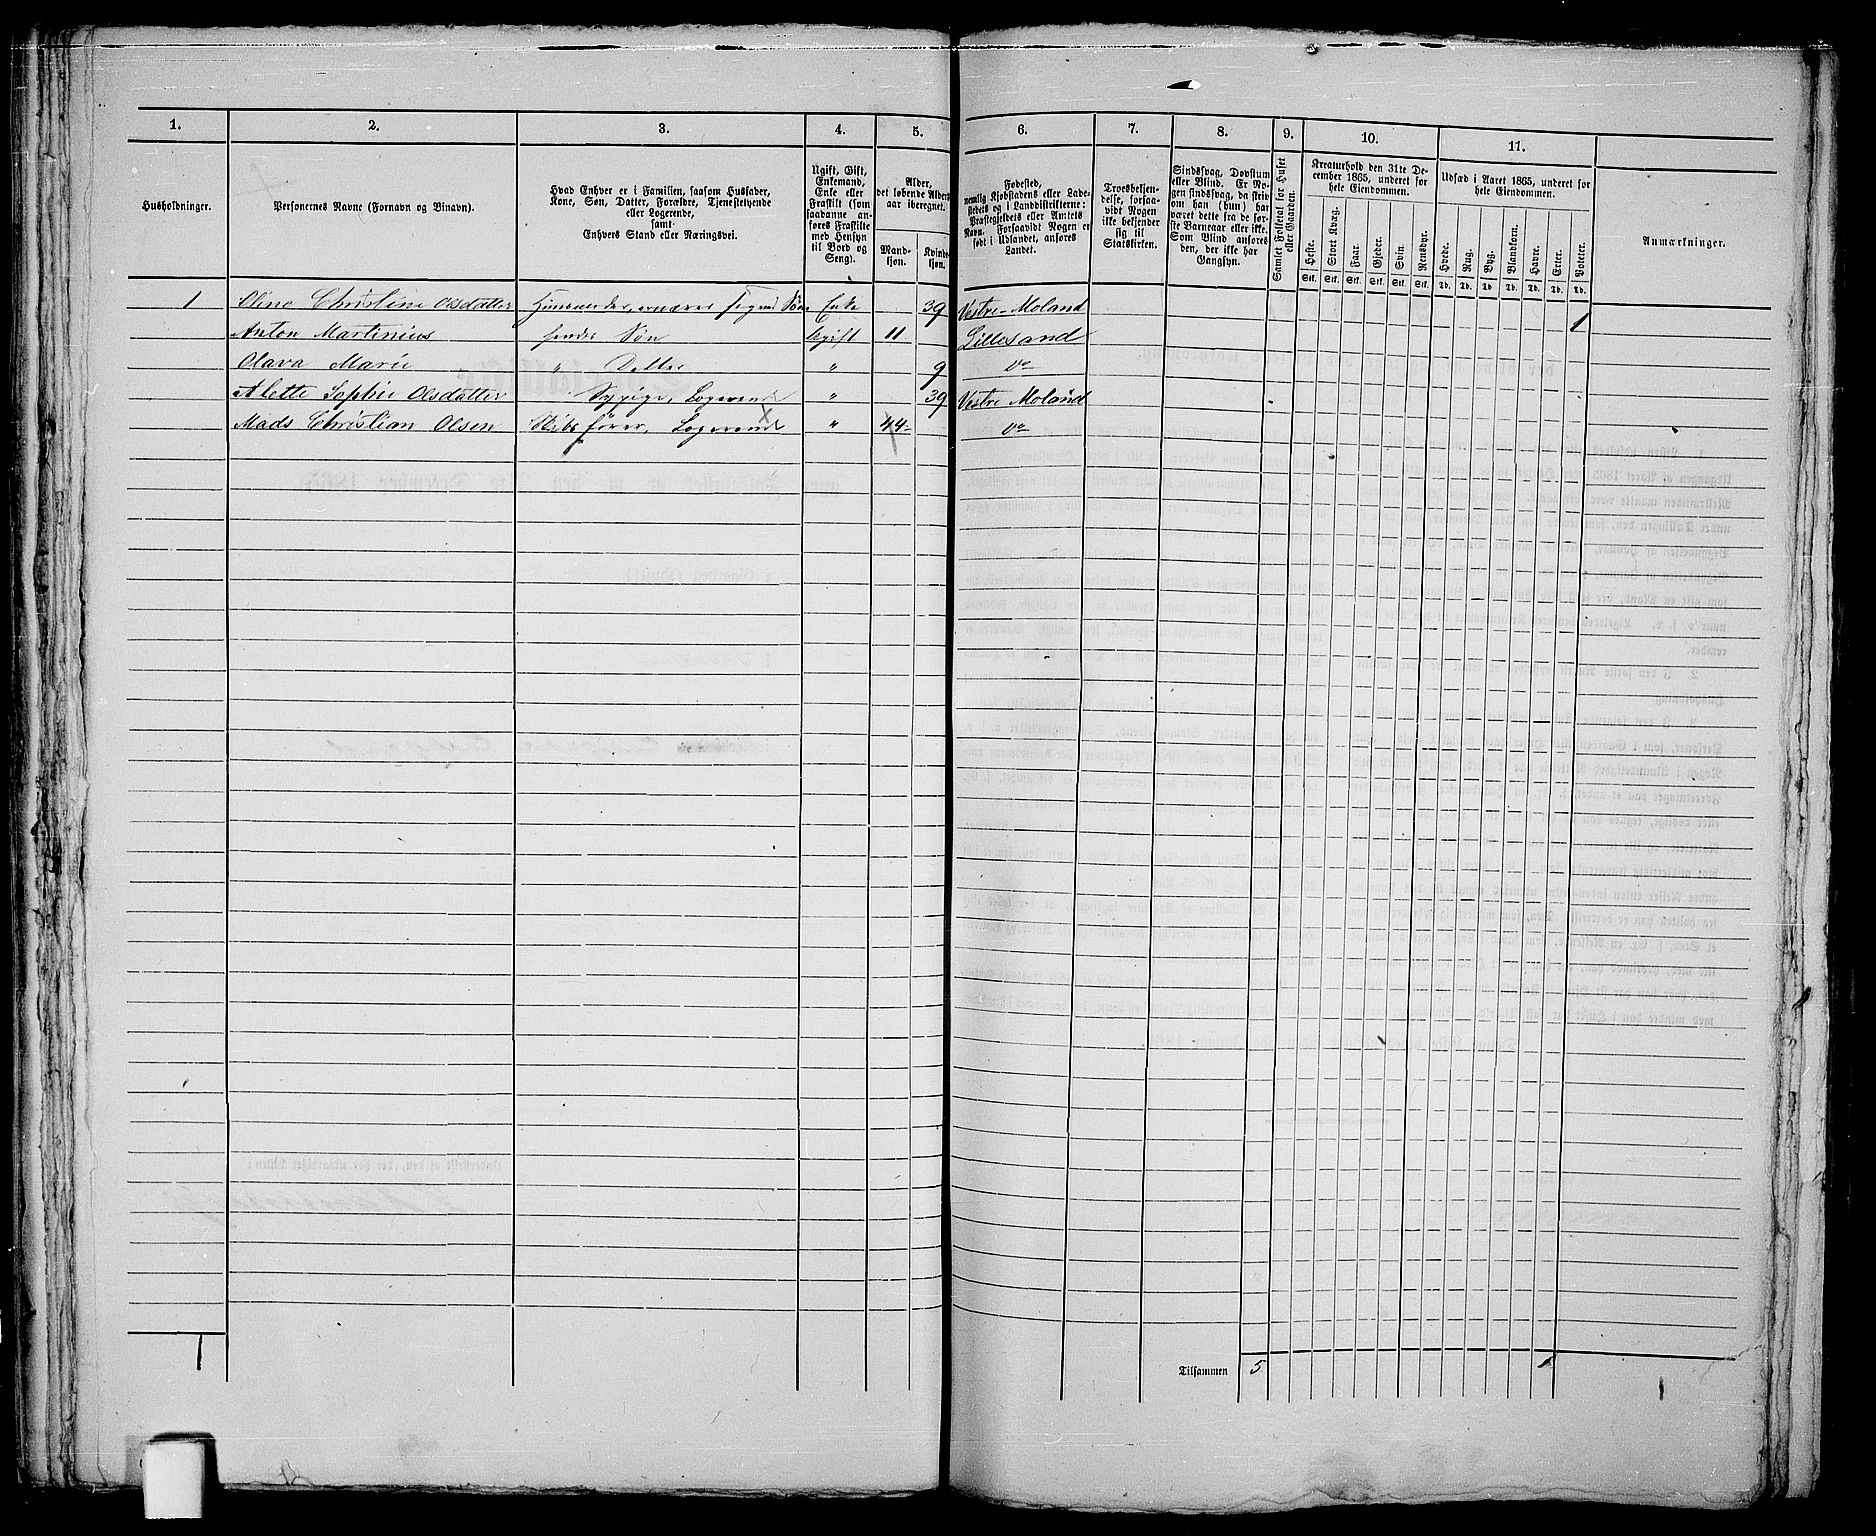 1. 2. 3. 4. 5. 6. 7. 8. 9. 10. 11.
Husholdninger.
Personernes Navne (Fornavn og Binavn).
Hvad Enhver er i Familien, saasom Husfader,
Kone, Søn, Datter, Forældre, Tjenestetyende
eller Logerende,
samt
Enhvers Stand eller Næringsvei.
Ugift, Gift,
Enkemand,
Enke eller
Fraskilt (som
saadanne an-
føres Fraskilte
med Hensyn
til Bord og
Seng).
Alder,
det løbende Alders-
aar iberegnet.
Mand-
kjøn.
Kvinde-
kjøn.
Fødested,
nemlig Kjøbstadens eller Lade-
stedets og i Landdistrikterne:
Præstegjeldets eller Amtets
Navn. Forsaavidt Nogen er
født i Udlandet, anføres
Landet.
Troesbekjen-
delse, forsaa-
vidt Nogen
ikke bekjender
sig til
Statskirken.
Sindssvag, Døvstum
eller Blind. Er No-
gen sindssvag, da skriv
om han (hun) har
været dette fra de før-
ste Barneaar eller ikke.
Som Blind anføres
den, der ikke har
Gangsyn.
Samlet Folketal for Huset
eller Gaarden.
Kreaturhold den 31te De-
cember 1865, underet for
hele Eiendommen.
Heste. Stort Kvæg. Faar. Gjeder. Svin. Rensdyr.
Stk. Stk. Stk. Stk. Stk. Stk.
Udsæd i Aaret 1865, underet for
hele Eiendommen.
Hvede. Rug. Byg. Blandkorn. Havre. Erter. Poteter.
Td. Td. Td. Td. Td. Td. Td.
Anmærkninger.
1 Oline Christine Olsdatter Enke 39 Vestre-Moland 1
Anton Martinius hendes Søn Ugift 11 Lillesand
Olava Marie " Datter " 9 do
Alette Sophie Olsdatter Sypige, Logerende " 39 Vestre Moland
Mads Christian Olsen Skibsfører, Logerende " 44 do
1 Tilsammen 5 1